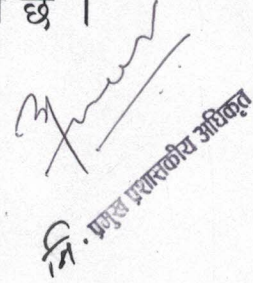 छ ।
नि. प्रमुख प्रशासकीय अधिकृत